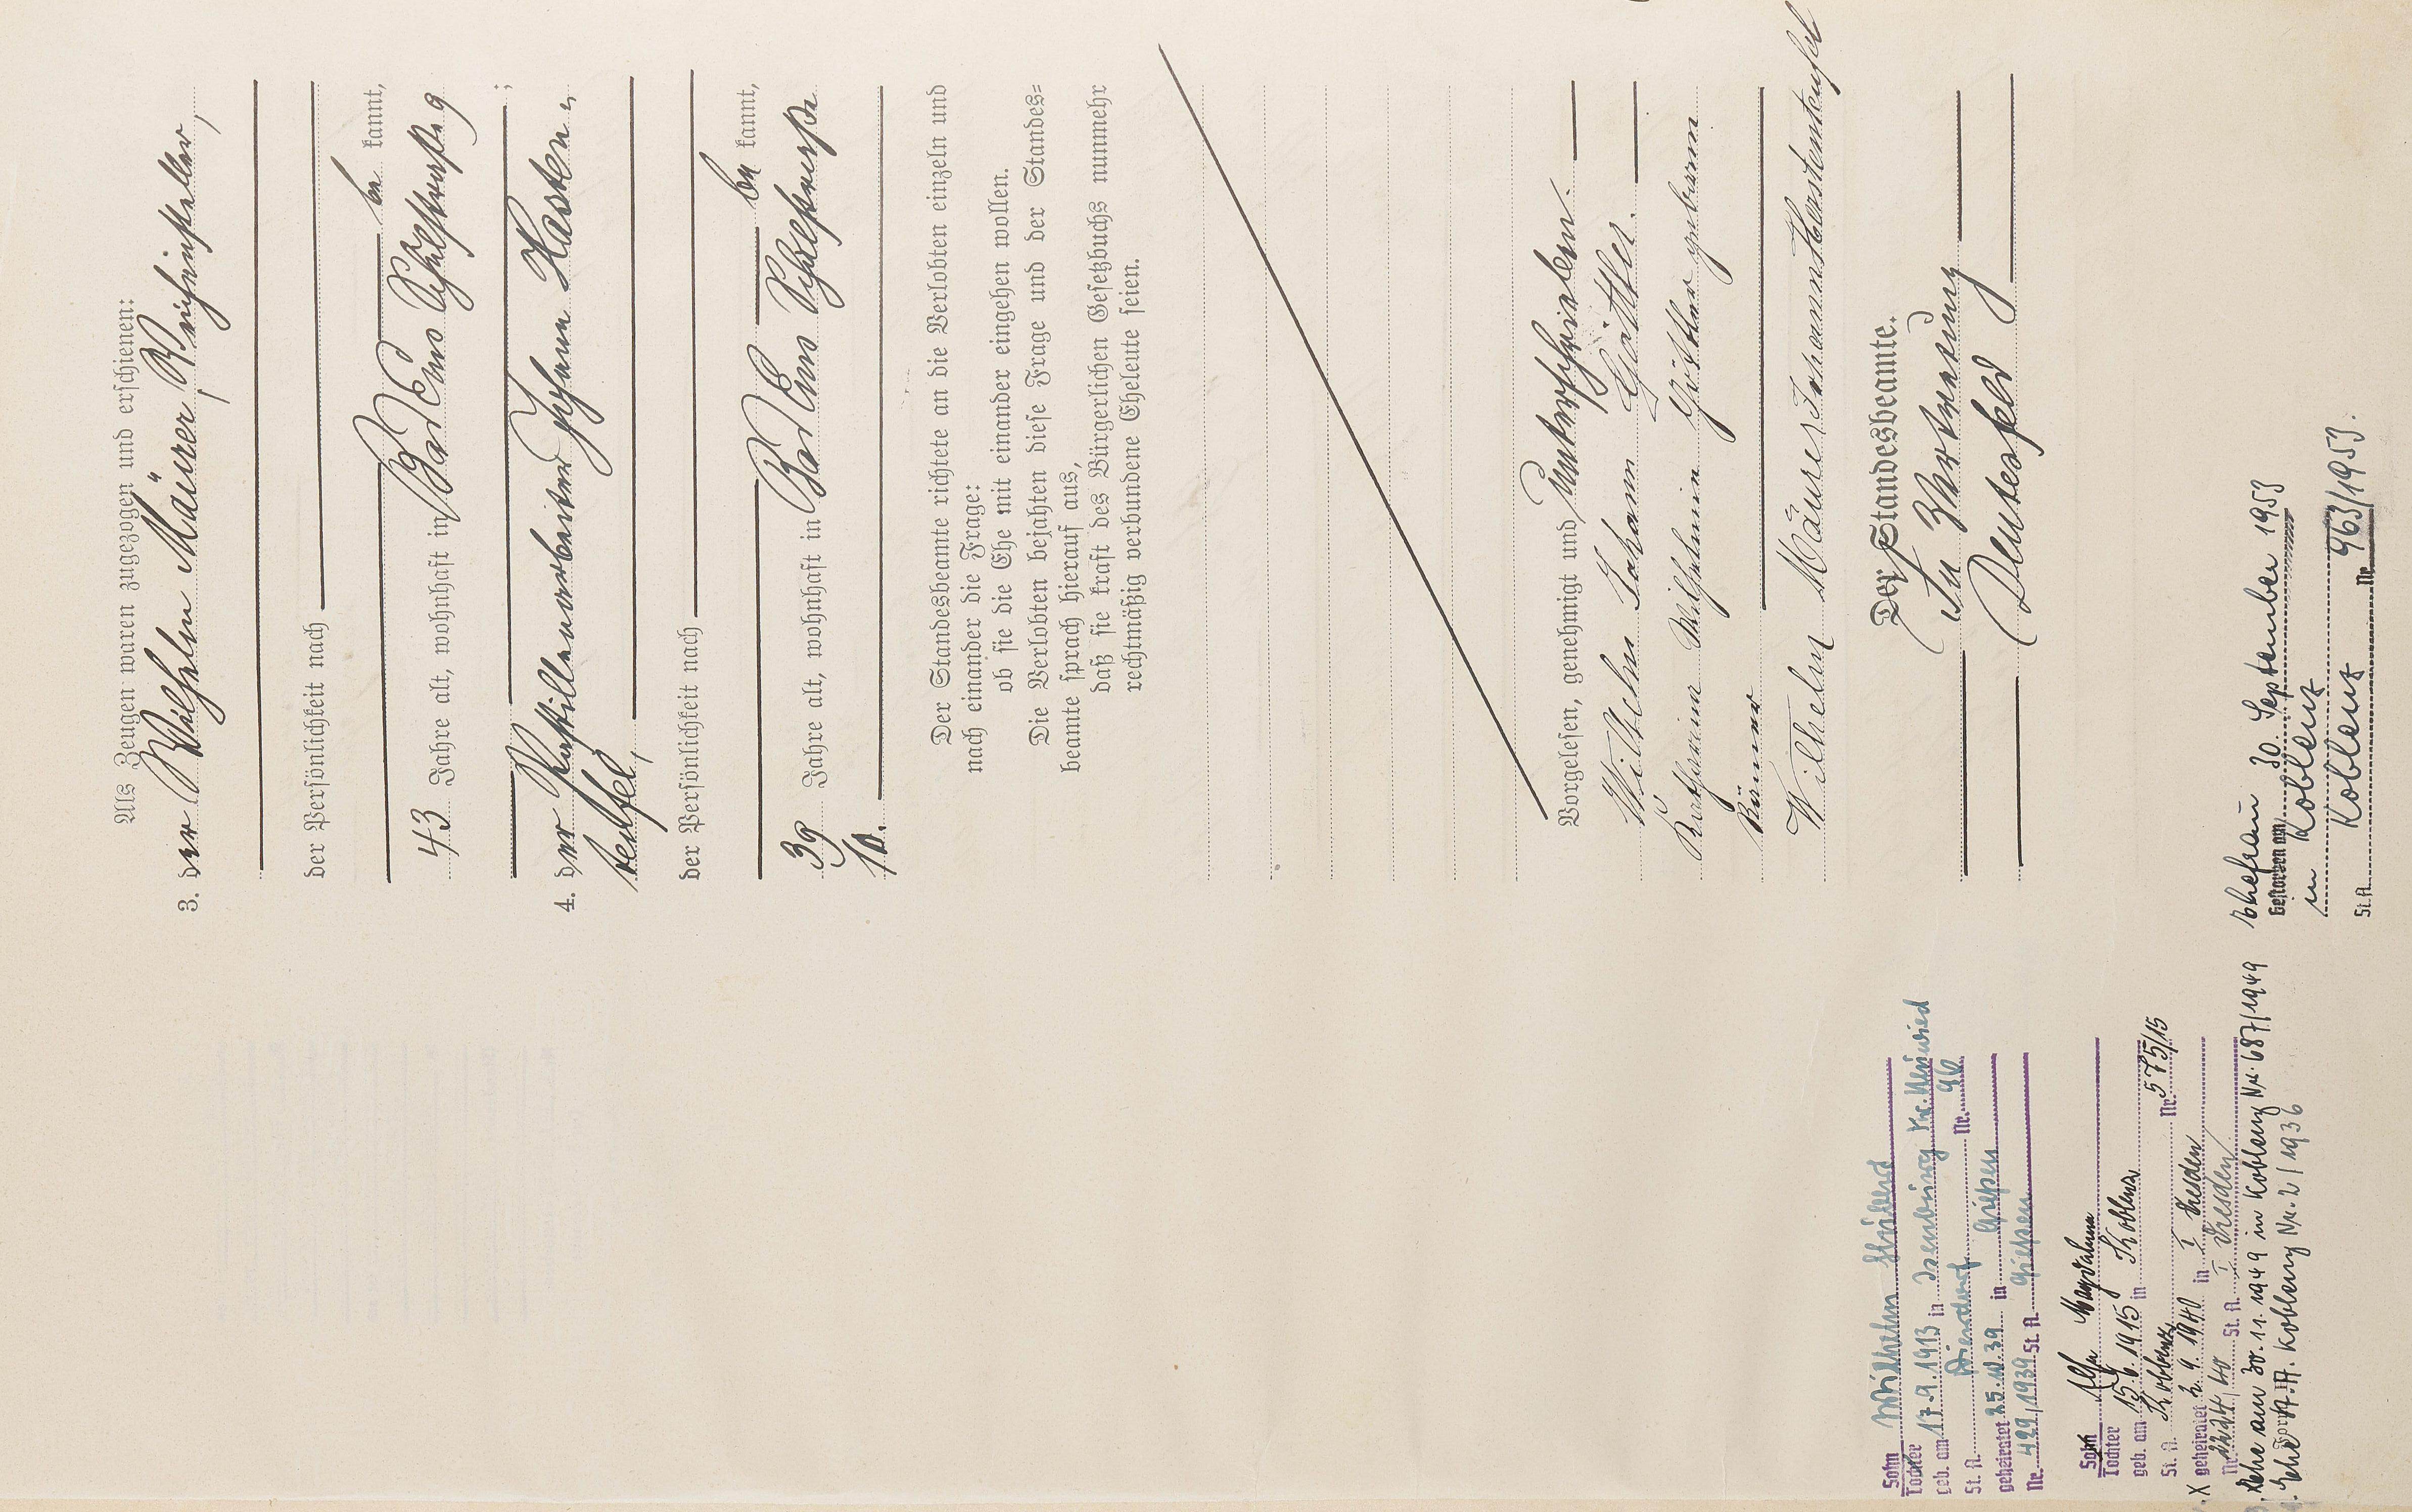 Als Zeugen waren zugezogen und erschienen:
3. der Wilhelm Mäurer, Schriftsteller,
der Persönlichkeit nach
be kannt,
43 Jahre alt, wohnhaft in Bad Ems Schulstraße 9
;
4. der Johann Karsten=
teufel,
der Persönlichkeit nach
be kannt,
39 Jahre alt, wohnhaft in Bad Ems Schulstraße
10.
Der Standesbeamte richtete an die Verlobten einzeln und
nach einander die Frage:
ob sie die Ehe mit einander eingehen wollen.
Die Verlobten bejahten diese Frage und der Standes=
beamte sprach hierauf aus,
daß sie kraft des Bürgerlichen Gesetzbuchs nunmehr
rechtmäßig verbundene Eheleute seien.
Vorgelesen, genehmigt und unterschrieben.
Wilhelm Johann Güttler.
Katharina Wilhelmina Güttler geboren
Wilhelm Mäurer Johann Kerstenteufel
Der Standesbeamte.
In Vertretung
Deutesfeld
Sohn Wilhelm
Tochter
geb. am 17.9.1913 in Isenburg Kr. Neuwied
St. A. Dierdorf Nr. 40
geheiratet 25.10.39 in Gießen
Nr. 429/1939 St. A. Gießen
Sohn Magdalena
Tochter
geb. am 15.6.1915 in Koblenz
St. A. Koblenz Nr. 575/15
X geheiratet 2.9.1940 in I Dresden
Nr. 2224/40 St. A. I Dresden
Ehe am 30.11.1949 in Koblenz Nr. 687/1949
Ehe St.A. Koblenz Nr. 2/1936
Ehefrau 30. September 1953
Gestorben am
in Koblenz
St. A. Koblenz Nr. 963/1953.